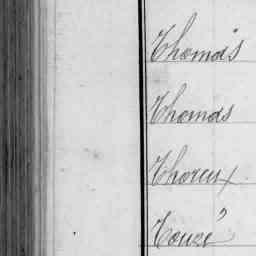 Thomas
Thomas
Thoreux
Touzé